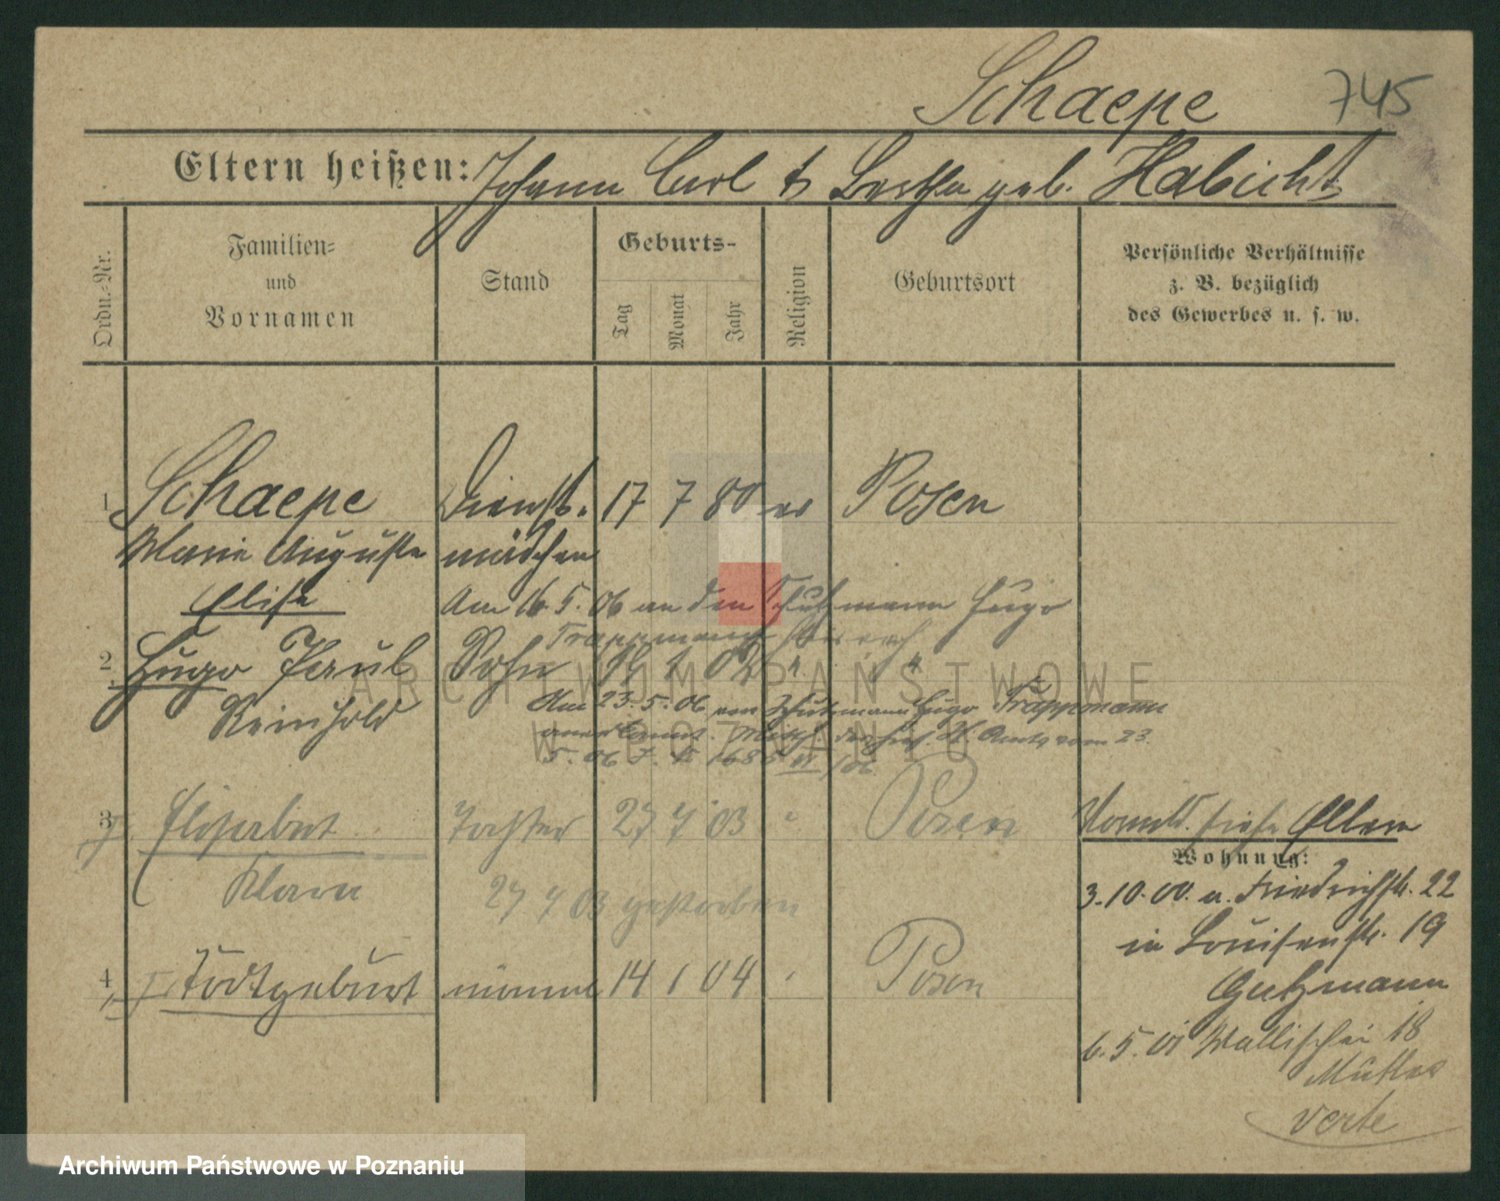 Schaepe 745
Eltern heißen: Johann Carl & Bertha geb. Habicht
Ordn.-Nr.
Familien-
und
Vornamen
Stand
Geburts-
Tag
Monat
Jahr
Religion
Geburtsort
Persönliche Verhältnisse
z. B. bezüglich
des Gewerbes u. s. w.
1 Schaepe Dienst- 17 7 80 ev Posen
Marie Auguste mädchen
Elise Am 16.5.06 an den Schutzmann Hugo
Trappmann
2 Hugo Paul Sohn 1 02 " "
Reinhold Am 23.5.06 vom Schutzmann Hugo Trappmann
anerkannt. Amts vom 23.
5.06
3 Elisabet Tochter 27 7 03 " Posen
Klara 27 7 03 gestorben
4 Todtgeburt männl 14 1 04 Posen
Vormld. siehe Eltern
Wohnung:
3.10.00. a. Friedrichstr. 22
in Louisenstr. 19
Gutzmann
6.5.01 Wallischei 18
Mutter
verte
ARCHIWUM PAŃSTWOWE
W POZNANIU
Archiwum Państwowe w Poznaniu